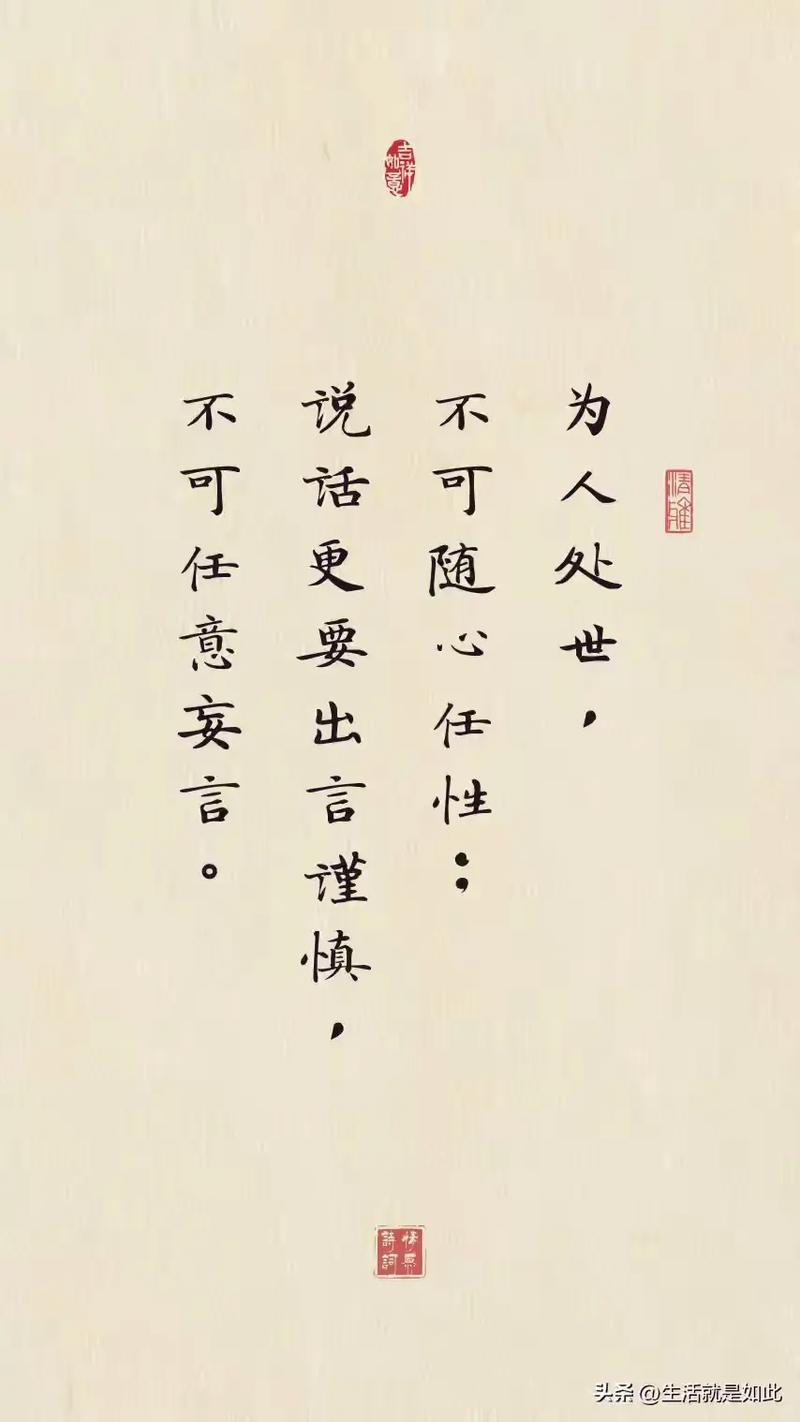 吉祥
如意
清雅
为人处世，
不可随心任性；
说话更要出言谨慎，
不可任意妄言。
诗词
头条 @生活就是如此